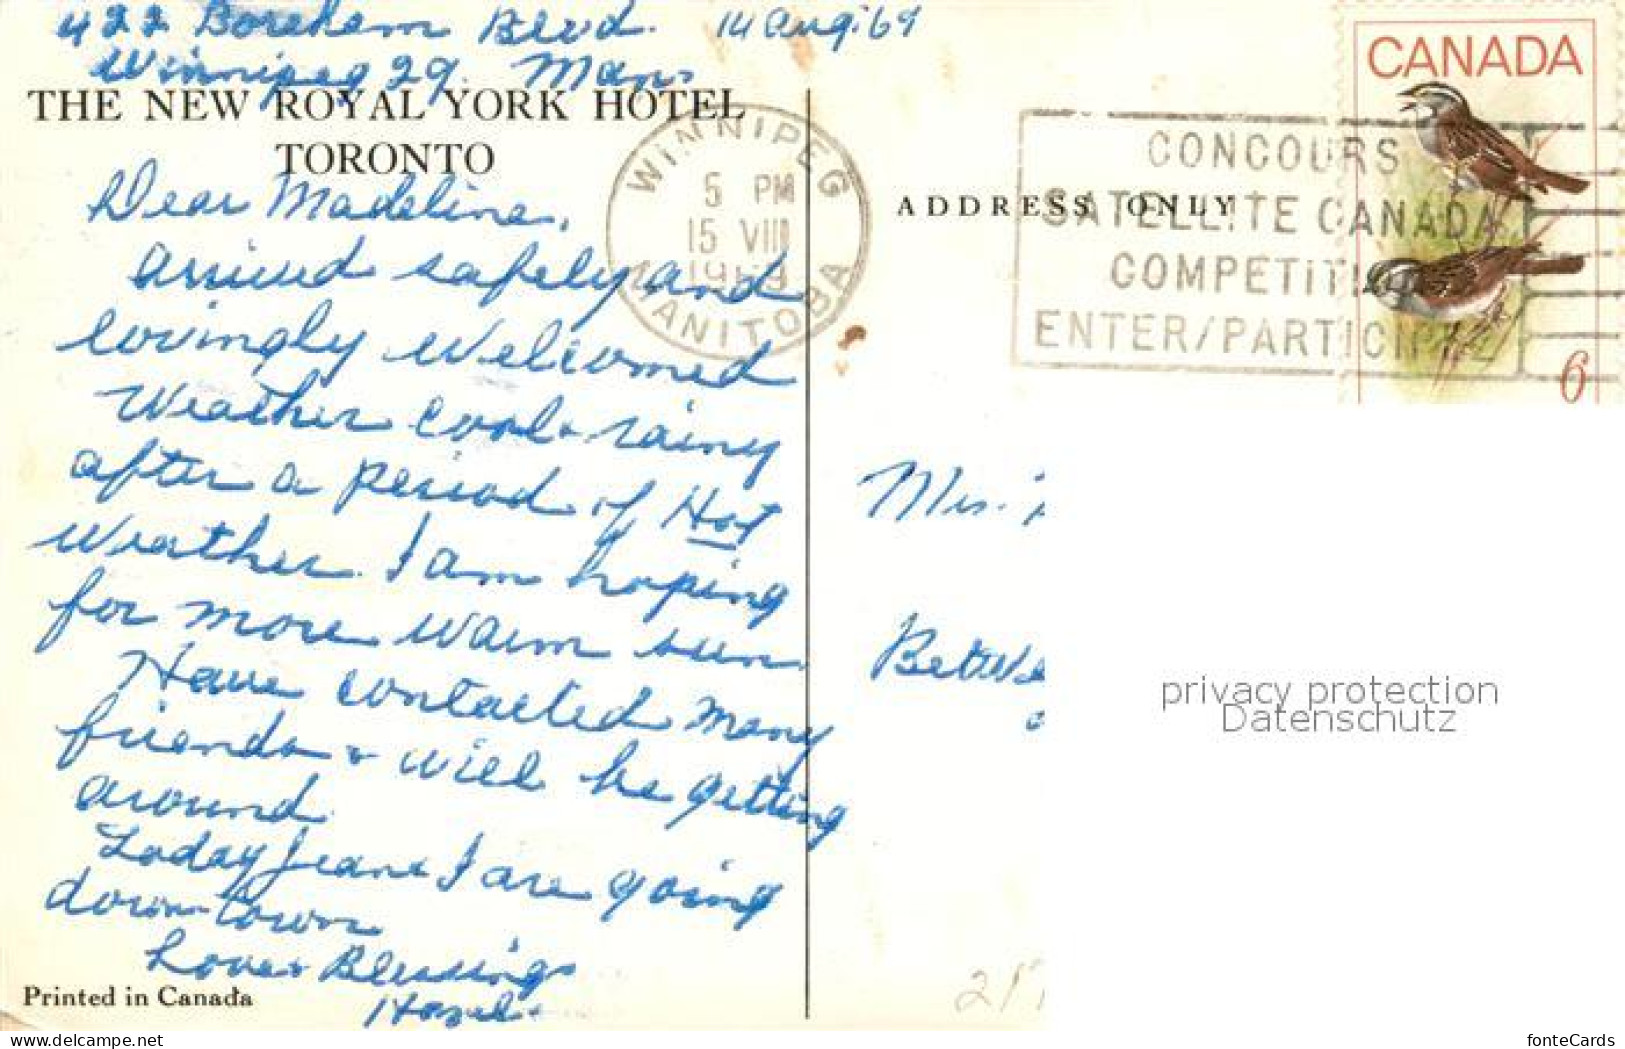 422 Boreham Blvd. 14 Aug. 69
Winnipeg 29. Man.
THE NEW ROYAL YORK HOTEL
TORONTO
Dear Madeline,
Arrived safely and
lovingly welcomed
Weather cool & rainy
after a period of Hot
weather. I am hoping
for more warm sun.
Have contacted many
friends & will be getting
around.
Today Jean & I are going
down-town
Love & Blessings
Hazel.
Printed in Canada
WINNIPEG
5 PM
15 VIII
1969
MANITOBA
CONCOURS
SATELLITE CANADA
COMPETITION
ENTER/PARTICIPEZ
CANADA
6
ADDRESS ONLY
privacy protection
Datenschutz
fonteCards
my.delcampe.net